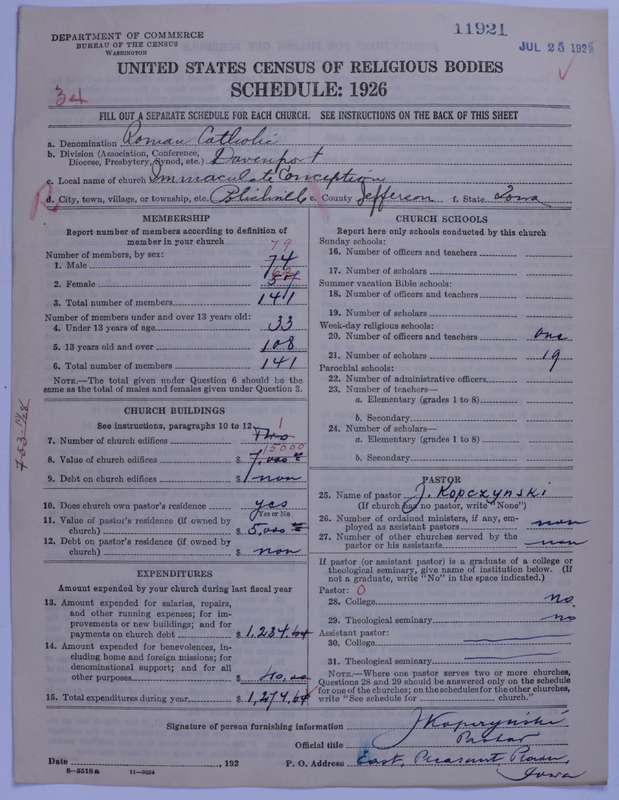 11921
JUL 25 192
DEPARTMENT OF COMMERCE
BUREAU OF THE CENSUS
WASHINGTON
UNITED STATES CENSUS OF RELIGIOUS BODIES
SCHEDULE: 1926
34
FILL OUT A SEPARATE SCHEDULE FOR EACH CHURCH. SEE INSTRUCTIONS ON THE BACK OF THIS SHEET
a. Denomination Roman Catholic
b. Division (Association, Conference, Diocese, Presbytery, Synod, etc.) Davenport
c. Local name of church Immaculate Conception
d. City, town, village, or township, etc. e. County Jefferson f. State Iowa
MEMBERSHIP
Report number of members according to definition of
member in your church
Number of members, by sex: 79
1. Male 74
2. Female
3. Total number of members 141
Number of members under and over 13 years old:
4. Under 13 years of age 33
5. 13 years old and over 108
6. Total number of members 141
NOTE.—The total given under Question 6 should be the
same as the total of males and females given under Question 3.
CHURCH BUILDINGS
See instructions, paragraphs 10 to 12 1
7. Number of church edifices Two
15000
8. Value of church edifices $ 7,000
9. Debt on church edifices $ non
10. Does church own pastor's residence yes
Yes or No
11. Value of pastor's residence (if owned by
church) $ 5,000
12. Debt on pastor's residence (if owned by
church) $ non
EXPENDITURES
Amount expended by your church during last fiscal year
13. Amount expended for salaries, repairs,
and other running expenses; for im-
provements or new buildings; and for
payments on church debt $ 1,234.64
14. Amount expended for benevolences, in-
cluding home and foreign missions; for
denominational support; and for all
other purposes $ 40.00
15. Total expenditures during year $ 1,274.64
CHURCH SCHOOLS
Report here only schools conducted by this church
Sunday schools:
16. Number of officers and teachers
17. Number of scholars
Summer vacation Bible schools:
18. Number of officers and teachers
19. Number of scholars
Week-day religious schools:
20. Number of officers and teachers one
21. Number of scholars 19
Parochial schools:
22. Number of administrative officers
23. Number of teachers—
a. Elementary (grades 1 to 8)
b. Secondary
24. Number of scholars—
a. Elementary (grades 1 to 8)
b. Secondary
PASTOR
25. Name of pastor J. Kopczynski
(If church has no pastor, write "None")
26. Number of ordained ministers, if any, em-
ployed as assistant pastors non
27. Number of other churches served by the
pastor or his assistants non
If pastor (or assistant pastor) is a graduate of a college or
theological seminary, give name of institution below. (If
not a graduate, write "No" in the space indicated.)
Pastor: 0
28. College no
29. Theological seminary no
Assistant pastor:
30. College
31. Theological seminary
NOTE.—Where one pastor serves two or more churches,
Questions 28 and 29 should be answered only on the schedule
for one of the churches; on the schedules for the other churches,
write "See schedule for church."
Signature of person furnishing information J Kopczynski
Official title Pastor
Date , 192 P. O. Address East, Pleasant Plain,
Iowa
8—5518a 11—9054